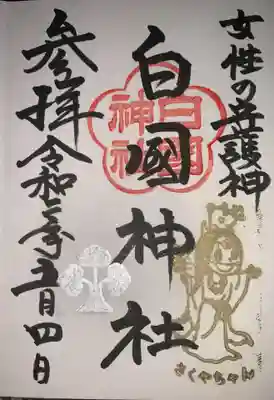 女性の守護神
白國神社
白國
神社
参拝令和七年五月四日
さくやちゃん